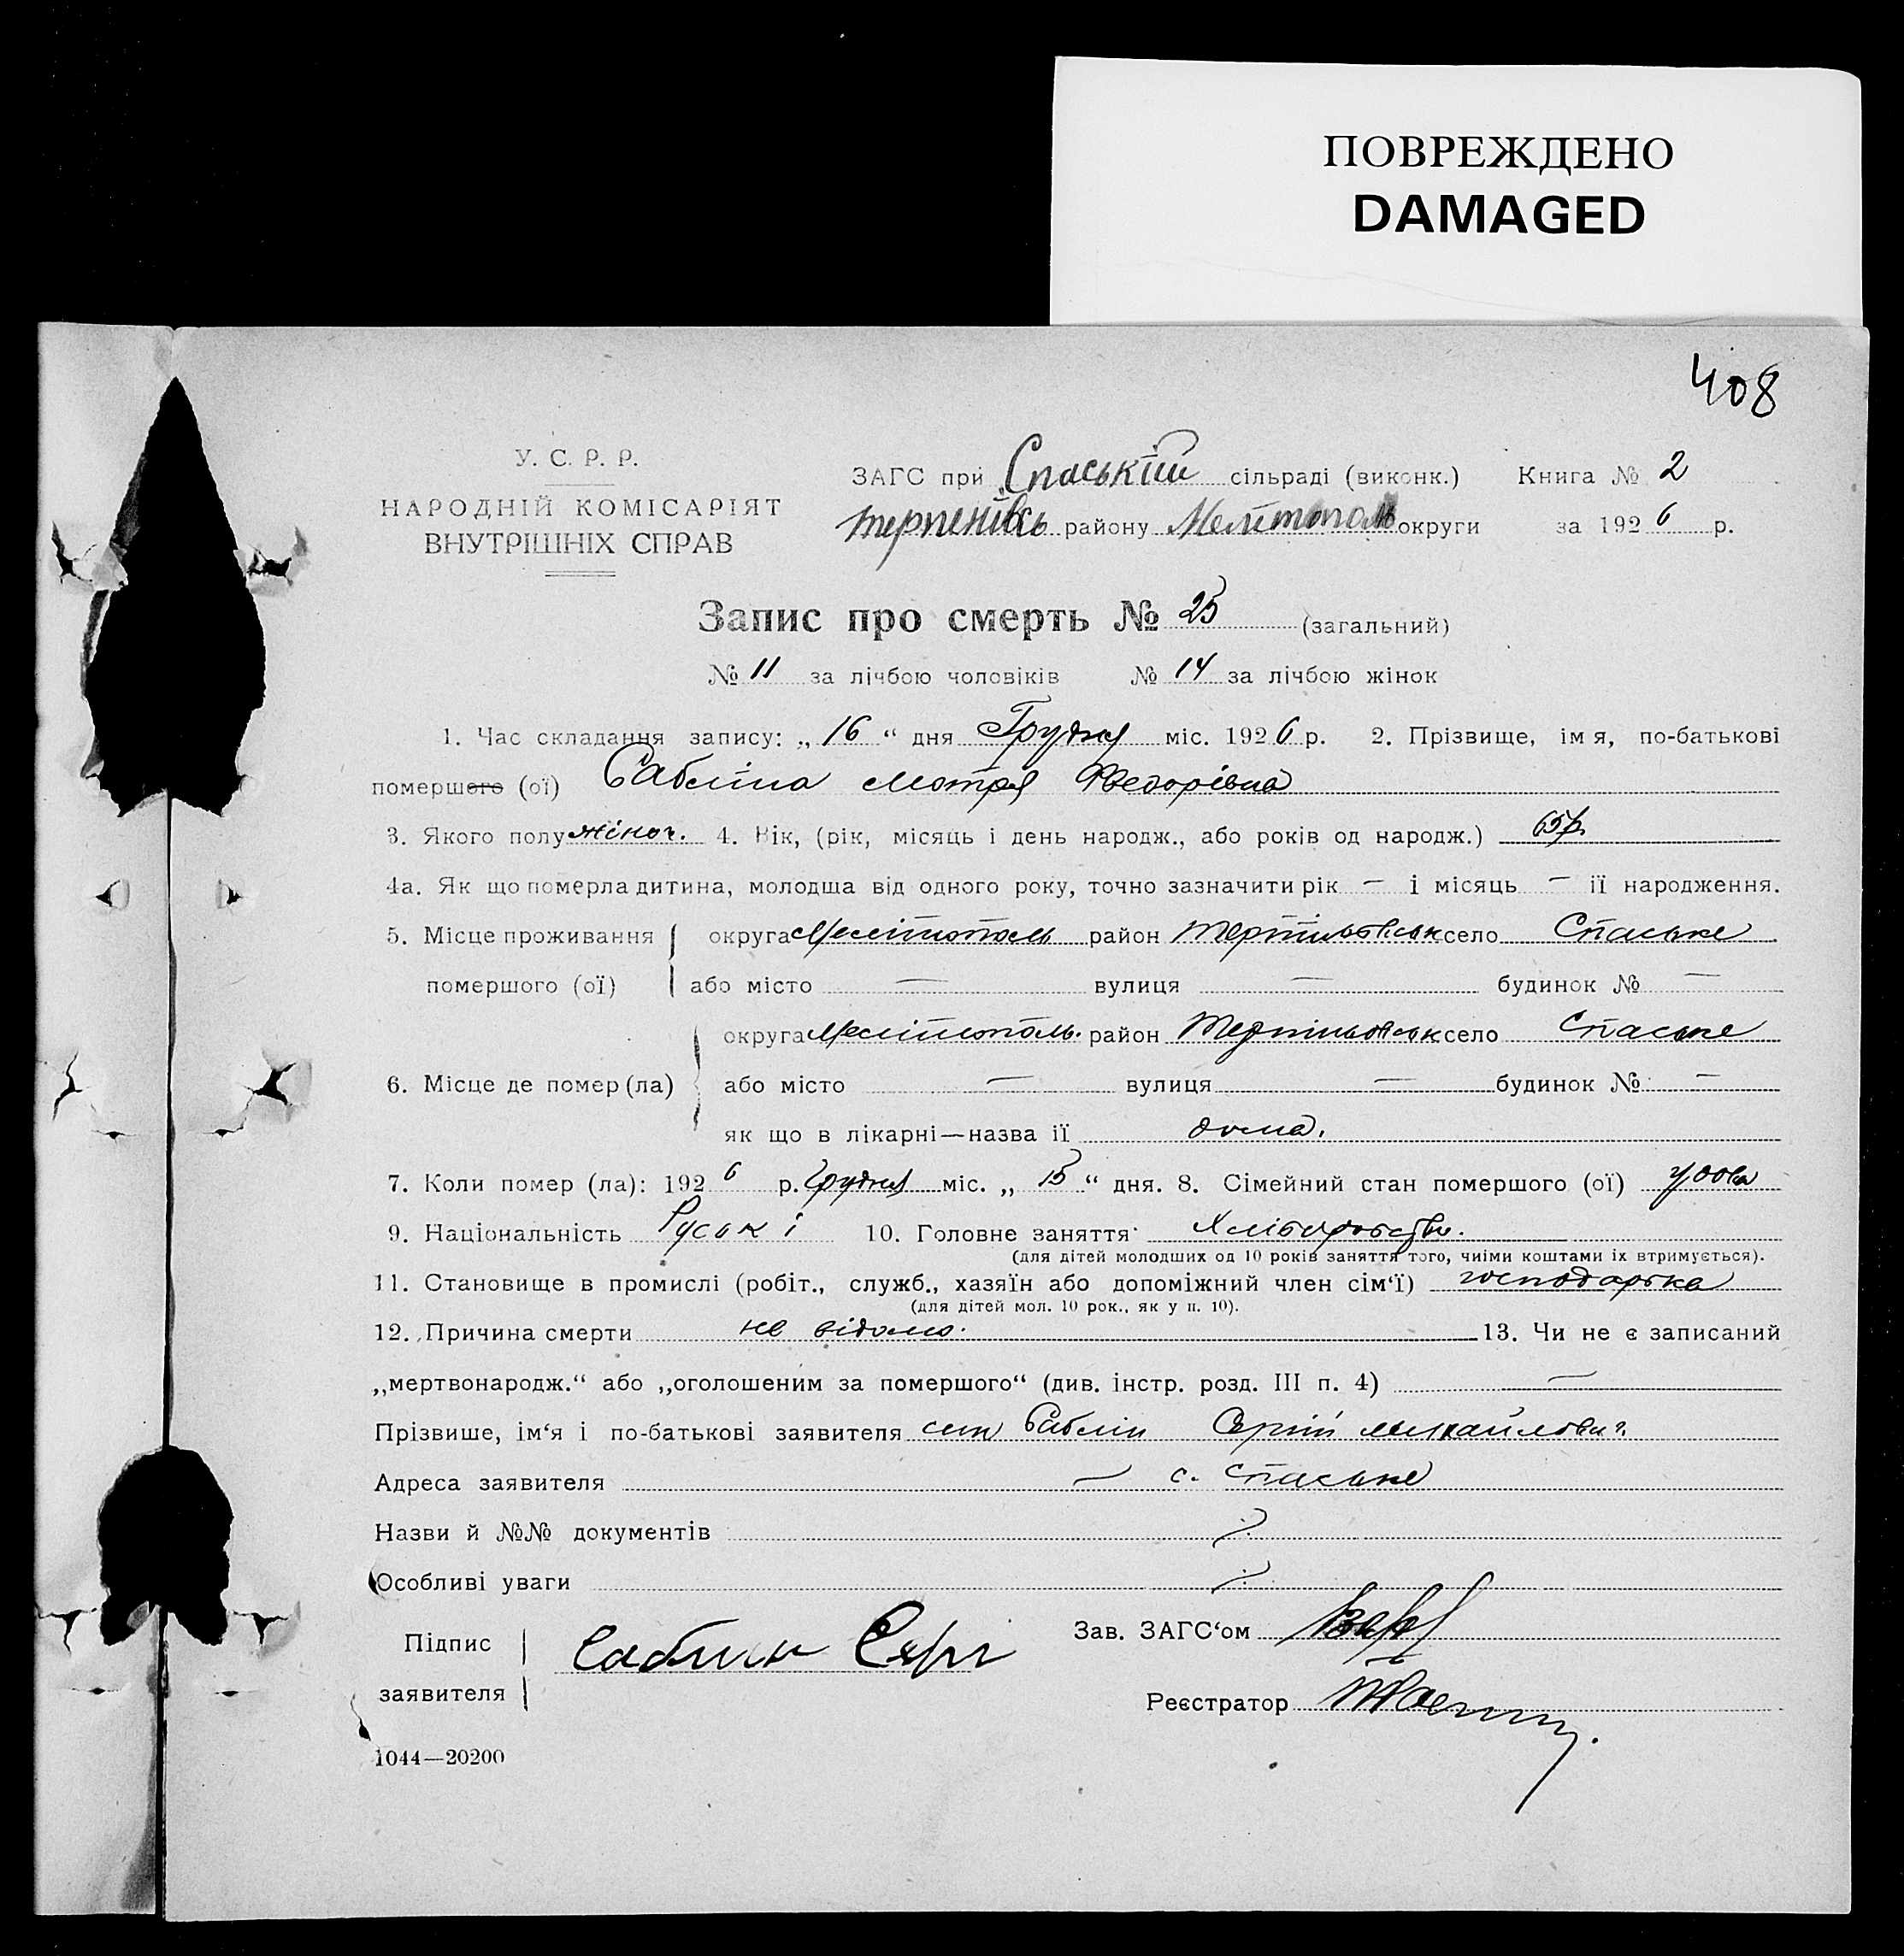 ПОВРЕЖДЕНО
DAMAGED
408
У. С. Р. Р.
НАРОДНІЙ КОМІСАРІЯТ
ВНУТРІШНІХ СПРАВ
ЗАГС при Спаській сільраді (виконк.) Книга № 2
району Мелітополь округи за 1926 р.
Запис про смерть № 25 (загальний)
№ 11 за лічбою чоловіків № 14 за лічбою жінок
1. Час складання запису: „ 16 “ дня Грудня міс. 1926 р. 2. Прізвище, ім я, по-батькові
помершого (ої) Сабліна Мотря Федорівна
3. Якого полу жіноч. 4. Вік, (рік, місяць і день народж., або років од народж.) 65 р.
4а. Як що померла дитина, молодша від одного року, точно зазначити рік — і місяць — ії народження.
5. Місце проживання округа Мелітополь район село Спаське
помершого (ої) або місто — вулиця — будинок № —
округа Мелітополь. район село Спаське
6. Місце де помер (ла) або місто — вулиця — будинок № —
як що в лікарні—назва ії дома.
7. Коли помер (ла): 1926 р. Грудня міс. „ 15 “ дня. 8. Сімейний стан помершого (ої) удова
9. Національність Руські 10. Головне заняття Хліборобство.
(для дітей молодших од 10 років заняття того, чиїми коштами їх втримується).
11. Становище в промислі (робіт., служб., хазяїн або допоміжний член сім‘ї) господарка
(для дітей мол. 10 рок., як у п. 10).
12. Причина смерти не відомо. 13. Чи не є записаний
„мертвонародж.“ або „оголошеним за помершого“ (див. інстр. розд. III п. 4) —
Прізвише, ім‘я і по-батькові заявителя син Саблін Сергій Михайлович
Адреса заявителя — с. Спаське
Назви й №№ документів
Особливі уваги
Підпис
заявителя
Саблин Серг
Зав. ЗАГС‘ом
Реєстратор
1044—20200